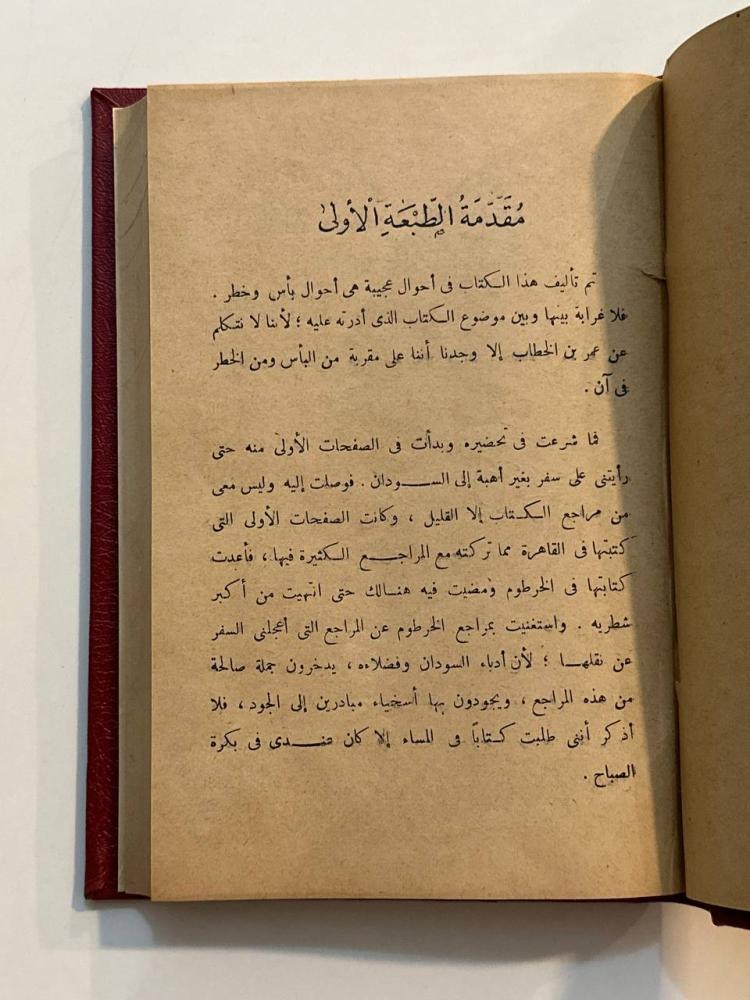 مُقَدَّمَةُ الطَّبْعَةِ الأولى
تم تأليف هذا الكتاب فى أحوال عجيبة هى أحوال بأس وخطر .
فلا غرابة بينها وبين موضوع الكتاب الذى أدرته عليه ؛ لأننا لا نتكلم
عن عمر بن الخطاب إلا وجدنا أننا على مقربة من البأس ومن الخطر
فى آن .
فما شرعت فى تحضيره وبدأت فى الصفحات الأولى منه حتى
رأيتنى على سفر بغير أهبة إلى السودان . فوصلت إليه وليس معى
من مراجع الكتاب إلا القليل ، وكانت الصفحات الأولى التى
كتبتها فى القاهرة مما تركته مع المراجع الكثيرة فيها ، فأعدت
كتابتها فى الخرطوم ومضيت فيه هنالك حتى انتهيت من أكبر
شطريه . واستغنيت بمراجع الخرطوم عن المراجع التى أعجلنى السفر
عن نقلها ؛ لأن أدباء السودان وفضلاءه ، يدخرون جملة صالحة
من هذه المراجع ، ويجودون بها أسخياء مبادرين إلى الجود ، فلا
أذكر أننى طلبت كتاباً فى المساء إلا كان عندى فى بكرة
الصباح .